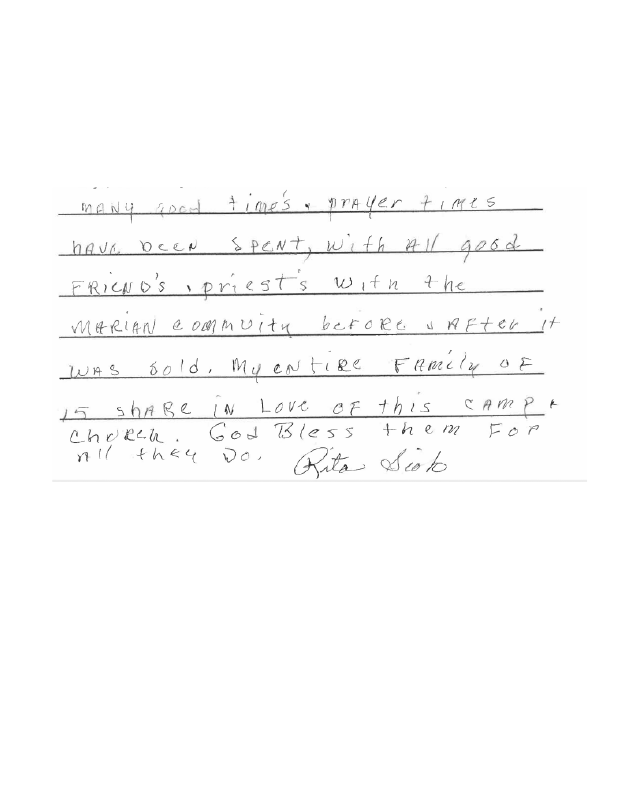 MANY good time's & prayer times
HAVE been Spent, With All good
FRIEND'S & priest's with the
MARIAN commuity before & AFter it
WAS Sold. My entire Family of
15 shARe in Love of this CAMP +
Chorch. God Bless them For
All they Do. Rita